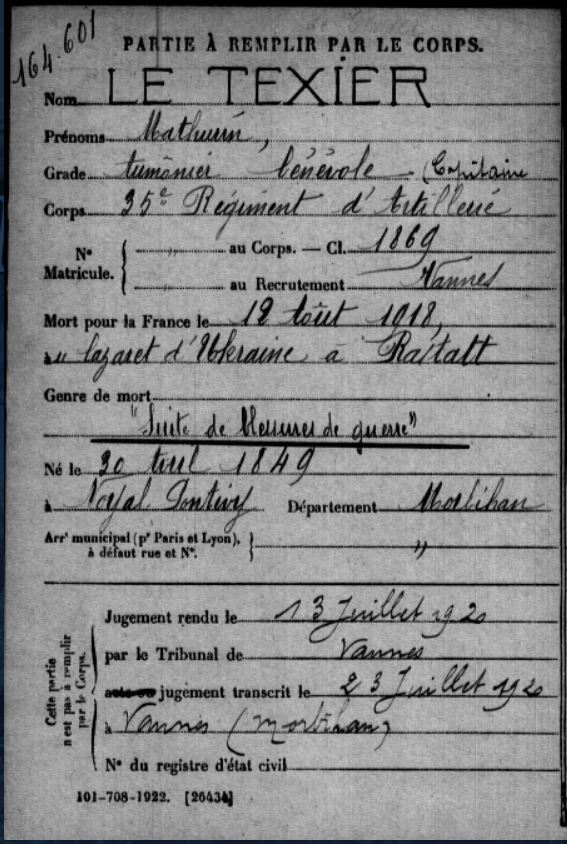 164.601
PARTIE À REMPLIR PAR LE CORPS.
Nom LE TEXIER
Prénoms Mathurin,
Grade Aumônier bénévole (Capitaine
Corps 35e Régiment d'Artillerie
N° Matricule. { " au Corps. — Cl. 1869
" au Recrutement Vannes
Mort pour la France le 12 Août 1918,
au lazaret d'Ukraine à Rastatt
Genre de mort
"Suite de blessures de guerre"
Né le 30 Avril 1849
à Noyal Pontivy Département Morbihan
Arrt municipal (pr Paris et Lyon), à défaut rue et N°. } "
Cette partie n'est pas à remplir par le Corps.
Jugement rendu le 13 Juillet 1920
par le Tribunal de Vannes
acte ou jugement transcrit le 23 Juillet 1920
à Vannes (Morbihan)
N° du registre d'état civil
101-708-1922. [26434]